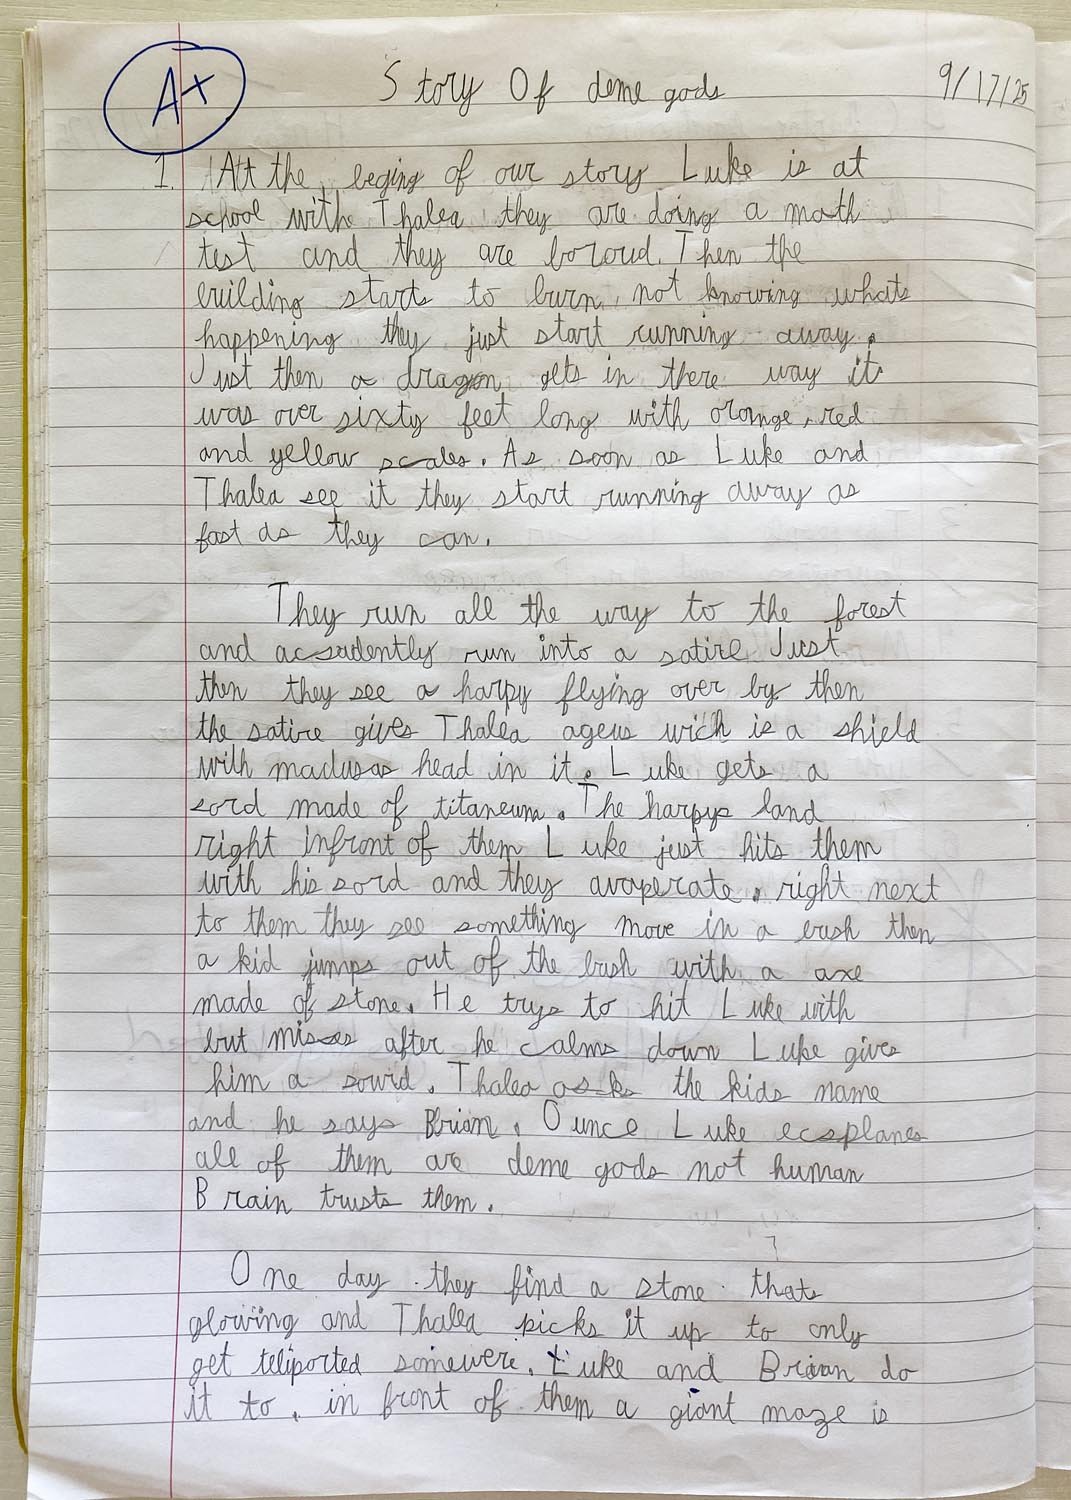 A+
Story Of deme gods
9/17/25
1. At the beging of our story Luke is at
school withe Thalea they are doing a math
test and they are boroud. Then the
building starts to burn, not knowing whats
happening they just start running away.
Just then a dragon gets in there way it
was over sixty feet long with orange, red
and yellow scales. As soon as Luke and
Thalea see it they start running away as
fast as they can.
They run all the way to the forest
and acsadently run into a satire Just
then they see a harpy flying over by then
the satire gives Thalea ageus wich is a shield
with madusas head in it. Luke gets a
sord made of titaneum. The harpys land
right infront of them Luke just hits them
with his sord and they avaperate. right next
to them they see something move in a bush then
a kid jumps out of the bush with a axe
made of stone. He trys to hit Luke with
but misses after he calms down Luke gives
him a sowrd. Thalea asks the kids name
and he says Brian. Ounce Luke ecsplanes
all of them are deme gods not human
Brain trusts them.
One day they find a stone thats
glowing and Thalea picks it up to only
get teliported somewere. Luke and Brian do
it to. in front of them a giant maze is